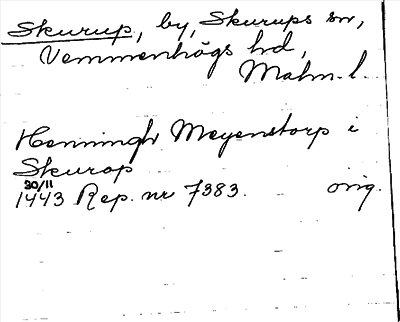 Skurup, by, Skurups sn,
Vemmenhögs hd,
Malm. l.
Henningh Meyenstorp i
Skurop
30/11
1443 Rep. nr 7383. orig.